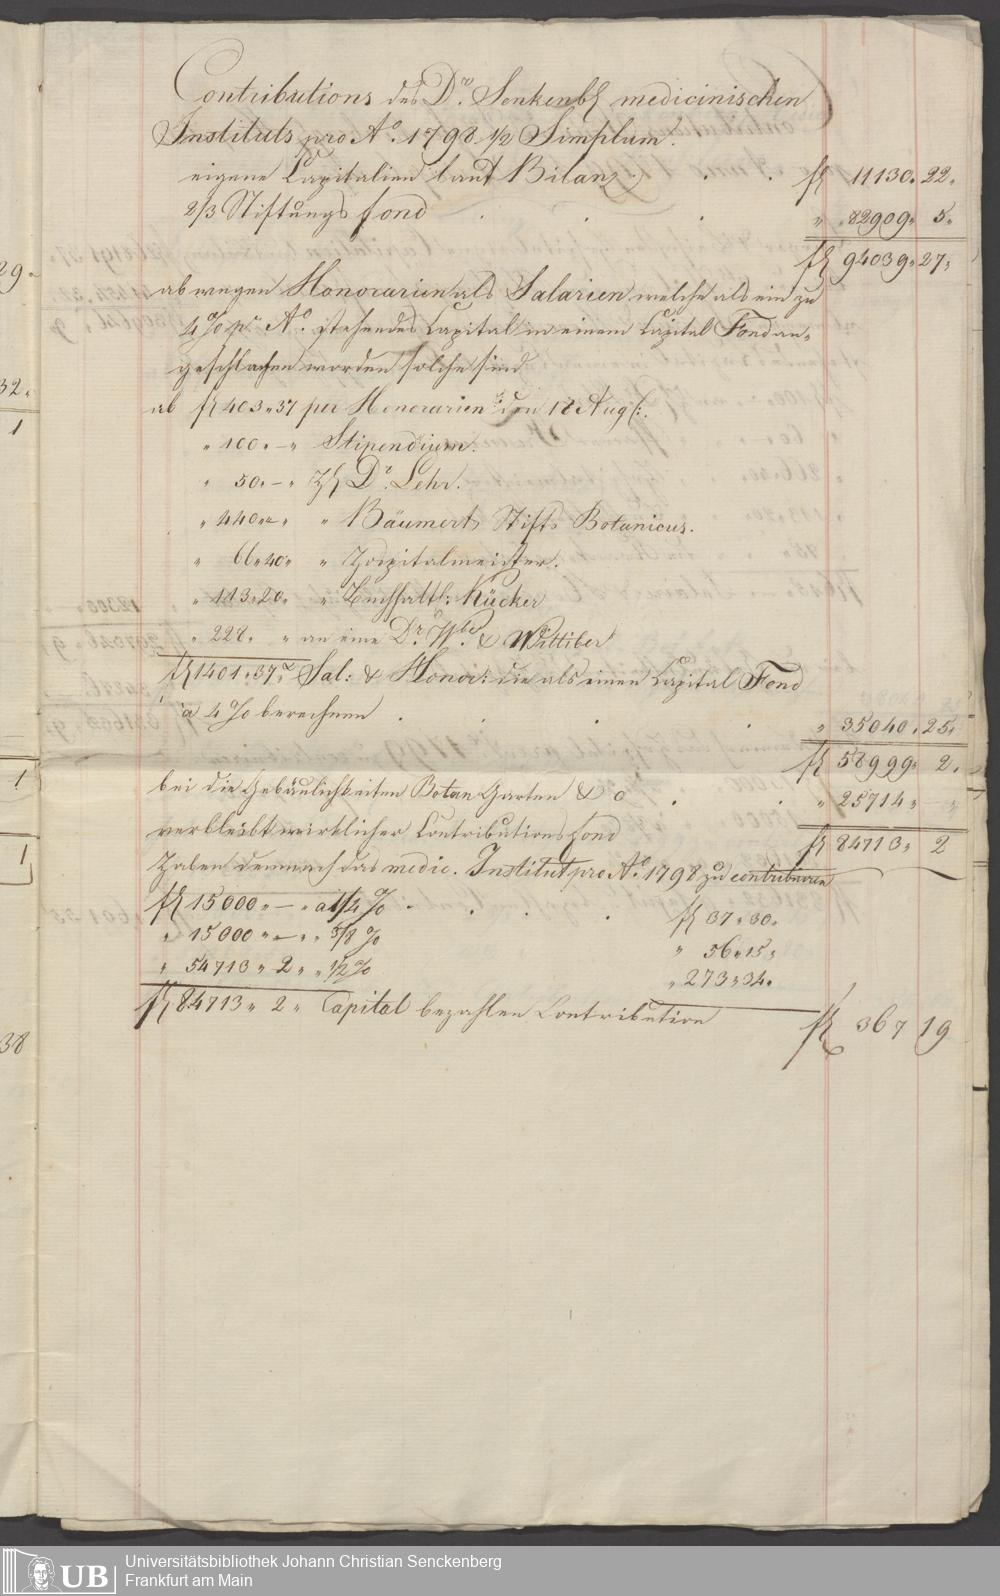 Contributions des Dr. Senkenb. medicinischen
Instituts pro Ao. 1798 1/2 Simplum.
eigene Capitalien laut Bilanz . . fl 11130. 22.
2/3 Stiftungs fond . . . " 82909. 5.
fl 94039. 27.
ab wegen Honorarien als Salarien welche als ein zu
4 % pr. Ao. stehendes Capital in einem Capital Fond an-
geschlagen worden solche sind
ab fl 403. 37 per Honorarien den 12 Aug.
" 100. – " Stipendium.
" 50. – " Dr. Lehr.
" 440. – " " Bäumert Stifts Botanicus.
" 66. 40. " Hospitalmeister.
" 113. 20. " Buchhalt. Rücker
" 228. " an eine Dr. Wbe & Wittiber
fl 1401. 37. Sal: & Honor: die als einen Capital Fond
à 4 % berechnen . . . . " 35040. 25.
fl 58999. 2.
bei die Gebäulichkeiten Botan Garten & c . . " 25714. – "
verbleibt wirklicher Contributions fond fl 84713. 2
Haben demnach das medic. Institut pro Ao. 1798 zu contribuiren
fl 15000. – " a 1/4 % . . . . fl 37. 30.
" 15000. – " " 3/8 % " 56. 15.
" 54713. 2. " 1/2 % " 273. 34.
fl 84713. 2. Capital bezahlen Contribution fl 367 19
29.
32.
1
1
1
38
UB
Universitätsbibliothek Johann Christian Senckenberg
Frankfurt am Main